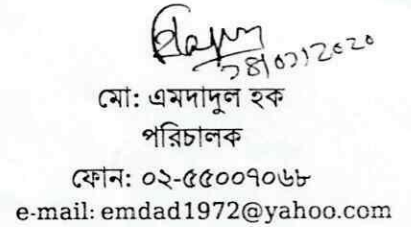 মো: এমদাদুল হক
পরিচালক
ফোন: ০২-৫৫০০৭০৬৮
e-mail: emdad1972@yahoo.com